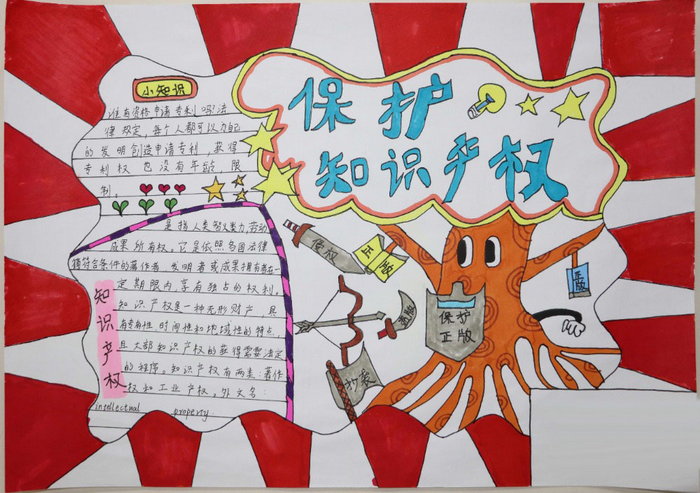 保护
知识产权
小知识
谁有资格申请专利吗?法
律规定,每个人都可以为自己
的发明创造申请专利,获得
专利权也没有年龄限
制。
是指人类智力劳动
成果所有权。它是依照各国法律
赋符合条件的著作者 发明者或成果拥有者在一
定期限内享有独占的权利,
知识产权是一种无形财产,具
有专有性 时间性和地域性的特点
且大部知识产权的获得需要法定
的程序。知识产权有两类:著作
权和工业产权。外文名:
intellectual property
知识产权
侵权
正版
盗版
抄袭
保护
正版
正版